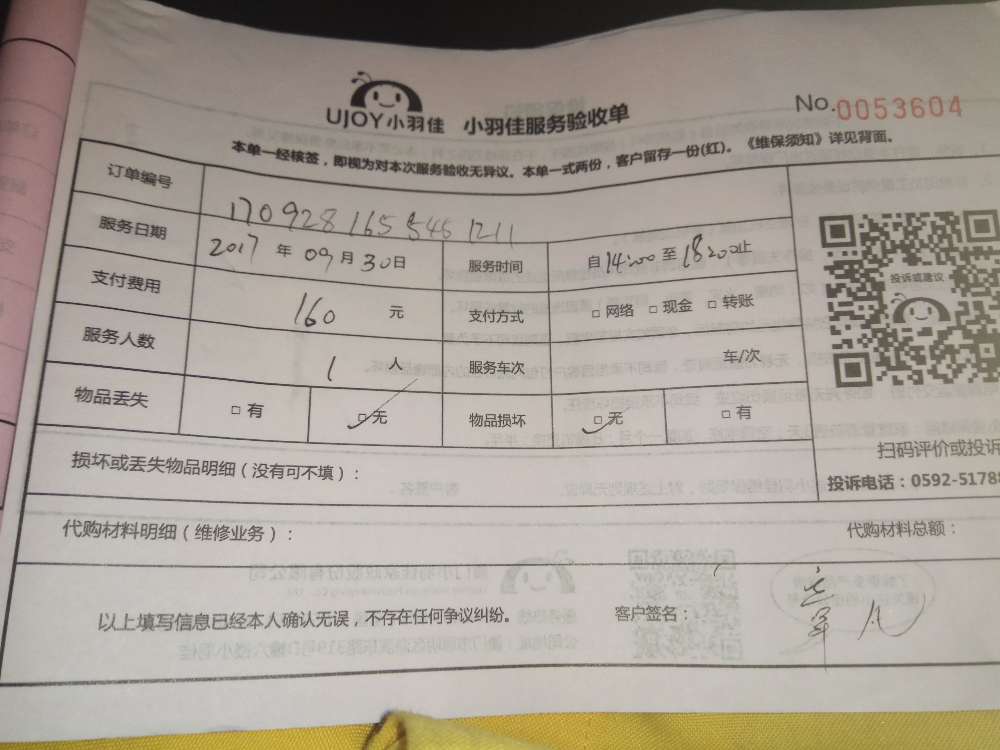 UJOY小羽佳 小羽佳服务验收单 No.0053604
本单一经核签，即视为对本次服务验收无异议。本单一式两份，客户留存一份(红)。《维保须知》详见背面。
订单编号 1709281655461211
服务日期 2017 年 09 月 30 日 服务时间 自 14:00 至 18:00 止
投诉或建议
支付费用 160 元 支付方式 □ 网络 □ 现金 □ 转账
服务人数 1 人 服务车次 车/次
物品丢失 □ 有 □ 无 物品损坏 □ 无 □ 有
扫码评价或投诉
损坏或丢失物品明细（没有可不填）：
投诉电话：0592-51788
代购材料明细（维修业务）： 代购材料总额：
以上填写信息已经本人确认无误，不存在任何争议纠纷。 客户签名：